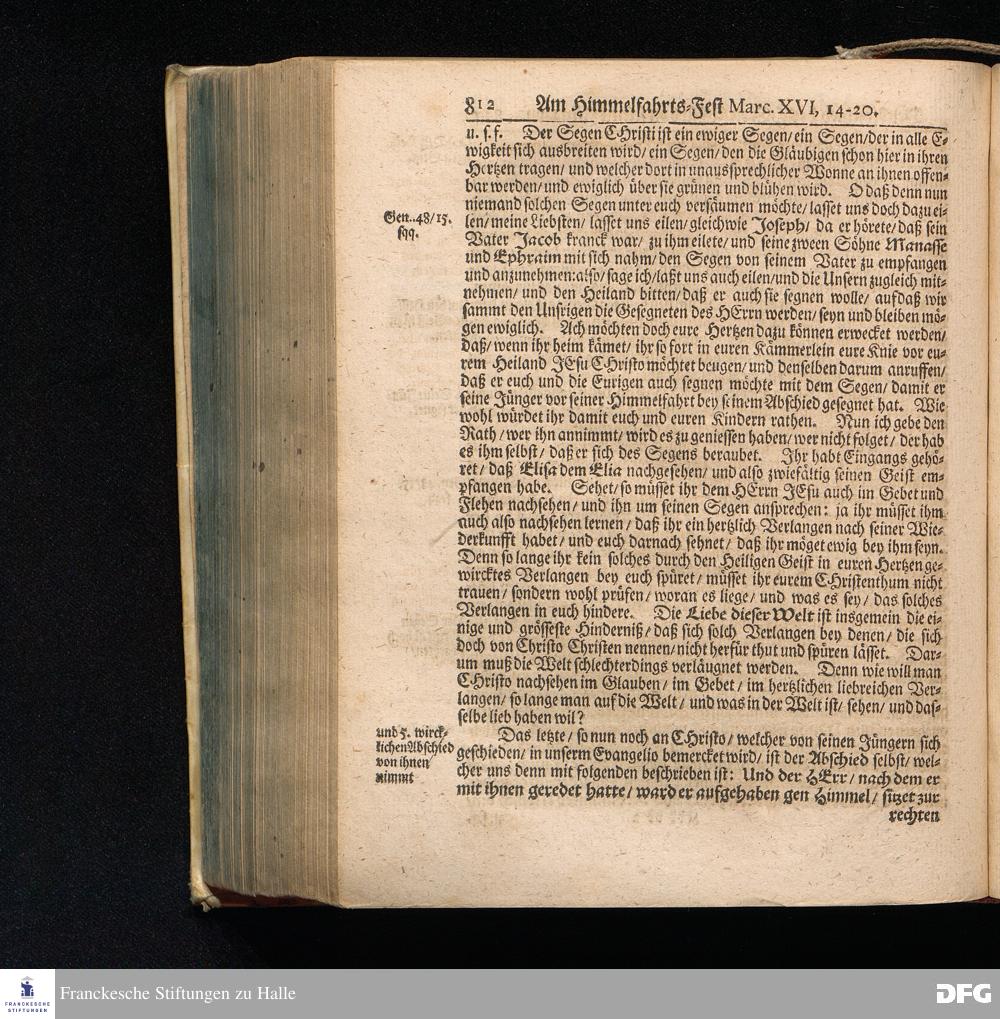 812 Am Himmelfahrts-Fest Marc. XVI, 14-20.
u. s. f. Der Segen CHristi ist ein ewiger Segen/ ein Segen/ der in alle E-
wigkeit sich ausbreiten wird/ ein Segen/ den die Gläubigen schon hier in ihren
Hertzen tragen/ und welcher dort in unaussprechlicher Wonne an ihnen offen-
bar werden/ und ewiglich über sie grünen und blühen wird. O daß denn nun
niemand solchen Segen unter euch versäumen möchte/ lasset uns doch dazu ei-
Gen. 48/15.
sqq.
len/ meine Liebsten/ lasset uns eilen/ gleichwie Joseph/ da er hörete/ daß sein
Vater Jacob kranck war/ zu ihm eilete/ und seine zween Söhne Manasse
und Ephraim mit sich nahm/ den Segen von seinem Vater zu empfangen
und anzunehmen: also/ sage ich/ laßt uns auch eilen/ und die Unsern zugleich mit-
nehmen/ und den Heiland bitten/ daß er auch sie segnen wolle/ aufdaß wir
sammt den Unsrigen die Gesegneten des HErrn werden/ seyn und bleiben mö-
gen ewiglich. Ach möchten doch eure Hertzen dazu können erwecket werden/
daß/ wenn ihr heim kämet/ ihr so fort in euren Kämmerlein eure Knie vor eu-
rem Heiland JEsu CHristo möchtet beugen/ und denselben darum anruffen/
daß er euch und die Eurigen auch segnen möchte mit dem Segen/ damit er
seine Jünger vor seiner Himmelfahrt bey seinem Abschied gesegnet hat. Wie
wohl würdet ihr damit euch und euren Kindern rathen. Nun ich gebe den
Rath/ wer ihn annimmt/ wird es zu geniessen haben/ wer nicht folget/ der hab
es ihm selbst/ daß er sich des Segens beraubet. Ihr habt Eingangs gehö-
ret/ daß Elisa dem Elia nachgesehen/ und also zwiefältig seinen Geist em-
pfangen habe. Sehet/ so müsset ihr dem HErrn JEsu auch im Gebet und
Flehen nachsehen/ und ihn um seinen Segen ansprechen: ja ihr müsset ihm
auch also nachsehen lernen/ daß ihr ein hertzlich Verlangen nach seiner Wie-
derkunfft habet/ und euch darnach sehnet/ daß ihr möget ewig bey ihm seyn.
Denn so lange ihr kein solches durch den Heiligen Geist in euren Hertzen ge-
wircktes Verlangen bey euch spüret/ müsset ihr eurem CHristenthum nicht
trauen/ sondern wohl prüfen/ woran es liege/ und was es sey/ das solches
Verlangen in euch hindere. Die Liebe dieser Welt ist insgemein die ei-
nige und grösseste Hinderniß/ daß sich solch Verlangen bey denen/ die sich
doch von Christo Christen nennen/ nicht herfür thut und spüren lässet. Dar-
um muß die Welt schlechterdings verläugnet werden. Denn wie will man
CHristo nachsehen im Glauben/ im Gebet/ im hertzlichen liebreichen Ver-
langen/ so lange man auf die Welt/ und was in der Welt ist/ sehen/ und das-
selbe lieb haben wil?
und 5. wirck-
lichen Abschied
von ihnen
nimmt
Das letzte/ so nun noch an CHristo/ welcher von seinen Jüngern sich
geschieden/ in unserm Evangelio bemercket wird/ ist der Abschied selbst/ wel-
cher uns denn mit folgenden beschrieben ist: Und der HErr/ nach dem er
mit ihnen geredet hatte/ ward er aufgehaben gen Himmel/ sitzet zur
rechten
FRANCKESCHE
STIFTUNGEN
Franckesche Stiftungen zu Halle
DFG